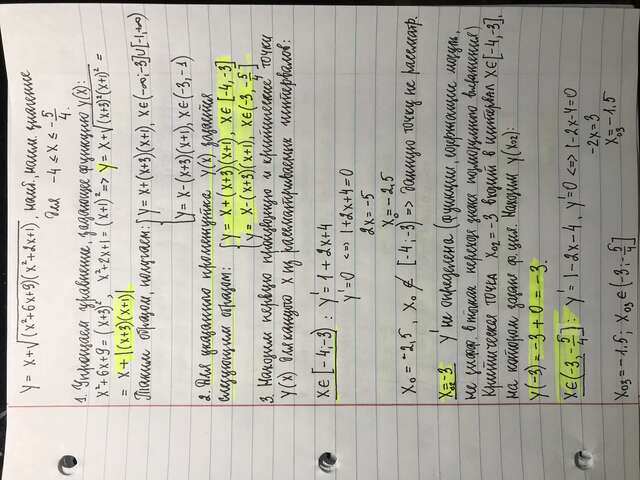 y = x+√(x²+6x+9)(x²+2x+1), наиб., наим. значение
для -4 ≤ x ≤ -5/4.
1. Упрощаем уравнение, задающее функцию y(x):
x²+6x+9 = (x+3)², x²+2x+1 = (x+1)² => y = x+√(x+3)²(x+1)² =
= x+|(x+3)(x+1)|
Таким образом, получаем: { y = x+(x+3)(x+1), x∈(-∞;-3]∪[-1,+∞)
y = x-(x+3)(x+1), x∈(-3,-1)
2. Для указанного промежутка y(x) задается
следующим образом: { y = x+(x+3)(x+1), x∈[-4,-3]
y = x-(x+3)(x+1), x∈(-3,-5/4]
3. Находим первую производную и критические точки
y(x) для каждого x из рассматриваемых интервалов:
x∈[-4;-3) : y' = 1+2x+4
y'=0 <=> 1+2x+4=0
2x = -5
x₀ = -2,5
x₀ = -2,5, x₀ ∉ [-4;-3) => данную точку не рассматр.
x₀₂=-3 y' не определена (функции, содержащие модуль,
не дифф. в точках перехода знака подмодульного выражения)
Критическая точка x₀₂ = -3 входит в интервал x∈[-4,-3],
на котором задана ф-ция. Находим y(x₀₂):
y(-3) = -3+0 = -3.
x∈(-3,-5/4] : y' = 1-2x-4, y'=0 <=> 1-2x-4=0
-2x = 3
x₀₃ = -1.5
x₀₃ = -1.5; x₀₃ ∈ (-3;-5/4]